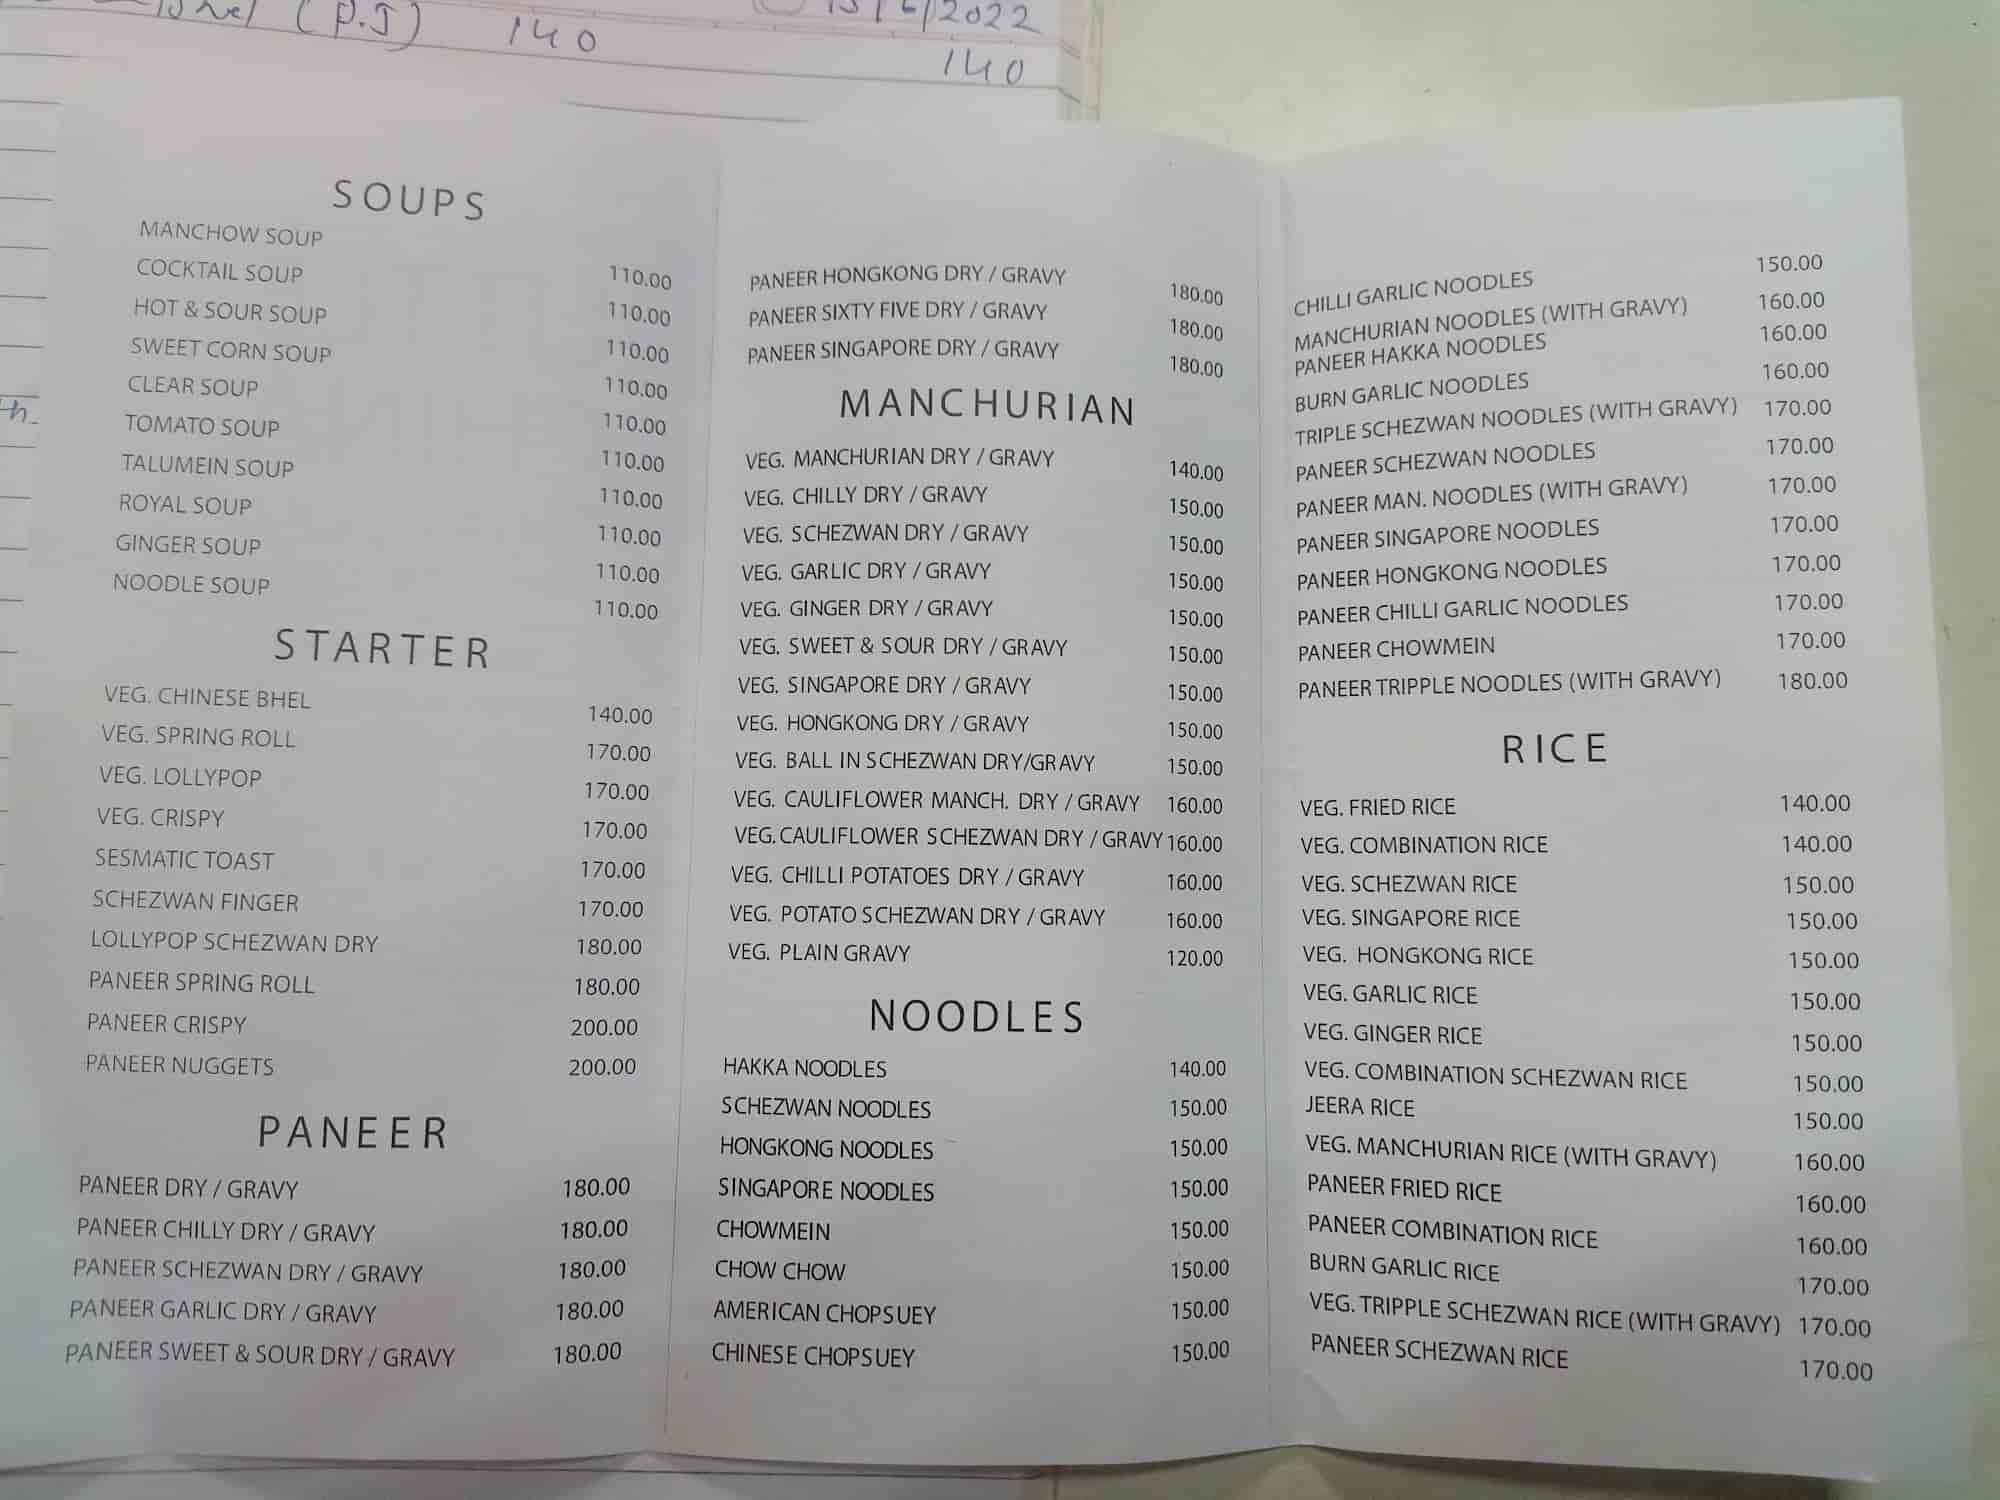 (P.J) 140
15/6/2022
140
SOUPS
MANCHOW SOUP 110.00
COCKTAIL SOUP 110.00
HOT & SOUR SOUP 110.00
SWEET CORN SOUP 110.00
CLEAR SOUP 110.00
TOMATO SOUP 110.00
TALUMEIN SOUP 110.00
ROYAL SOUP 110.00
GINGER SOUP 110.00
NOODLE SOUP 110.00
STARTER
VEG. CHINESE BHEL 140.00
VEG. SPRING ROLL 170.00
VEG. LOLLYPOP 170.00
VEG. CRISPY 170.00
SESMATIC TOAST 170.00
SCHEZWAN FINGER 170.00
LOLLYPOP SCHEZWAN DRY 180.00
PANEER SPRING ROLL 180.00
PANEER CRISPY 200.00
PANEER NUGGETS 200.00
PANEER
PANEER DRY / GRAVY 180.00
PANEER CHILLY DRY / GRAVY 180.00
PANEER SCHEZWAN DRY / GRAVY 180.00
PANEER GARLIC DRY / GRAVY 180.00
PANEER SWEET & SOUR DRY / GRAVY 180.00
PANEER HONGKONG DRY / GRAVY 180.00
PANEER SIXTY FIVE DRY / GRAVY 180.00
PANEER SINGAPORE DRY / GRAVY 180.00
MANCHURIAN
VEG. MANCHURIAN DRY / GRAVY 140.00
VEG. CHILLY DRY / GRAVY 150.00
VEG. SCHEZWAN DRY / GRAVY 150.00
VEG. GARLIC DRY / GRAVY 150.00
VEG. GINGER DRY / GRAVY 150.00
VEG. SWEET & SOUR DRY / GRAVY 150.00
VEG. SINGAPORE DRY / GRAVY 150.00
VEG. HONGKONG DRY / GRAVY 150.00
VEG. BALL IN SCHEZWAN DRY/GRAVY 150.00
VEG. CAULIFLOWER MANCH. DRY / GRAVY 160.00
VEG. CAULIFLOWER SCHEZWAN DRY / GRAVY 160.00
VEG. CHILLI POTATOES DRY / GRAVY 160.00
VEG. POTATO SCHEZWAN DRY / GRAVY 160.00
VEG. PLAIN GRAVY 120.00
NOODLES
HAKKA NOODLES 140.00
SCHEZWAN NOODLES 150.00
HONGKONG NOODLES 150.00
SINGAPORE NOODLES 150.00
CHOWMEIN 150.00
CHOW CHOW 150.00
AMERICAN CHOPSUEY 150.00
CHINESE CHOPSUEY 150.00
CHILLI GARLIC NOODLES 150.00
MANCHURIAN NOODLES (WITH GRAVY) 160.00
PANEER HAKKA NOODLES 160.00
BURN GARLIC NOODLES 160.00
TRIPLE SCHEZWAN NOODLES (WITH GRAVY) 170.00
PANEER SCHEZWAN NOODLES 170.00
PANEER MAN. NOODLES (WITH GRAVY) 170.00
PANEER SINGAPORE NOODLES 170.00
PANEER HONGKONG NOODLES 170.00
PANEER CHILLI GARLIC NOODLES 170.00
PANEER CHOWMEIN 170.00
PANEER TRIPPLE NOODLES (WITH GRAVY) 180.00
RICE
VEG. FRIED RICE 140.00
VEG. COMBINATION RICE 140.00
VEG. SCHEZWAN RICE 150.00
VEG. SINGAPORE RICE 150.00
VEG. HONGKONG RICE 150.00
VEG. GARLIC RICE 150.00
VEG. GINGER RICE 150.00
VEG. COMBINATION SCHEZWAN RICE 150.00
JEERA RICE 150.00
VEG. MANCHURIAN RICE (WITH GRAVY) 160.00
PANEER FRIED RICE 160.00
PANEER COMBINATION RICE 160.00
BURN GARLIC RICE 170.00
VEG. TRIPPLE SCHEZWAN RICE (WITH GRAVY) 170.00
PANEER SCHEZWAN RICE 170.00